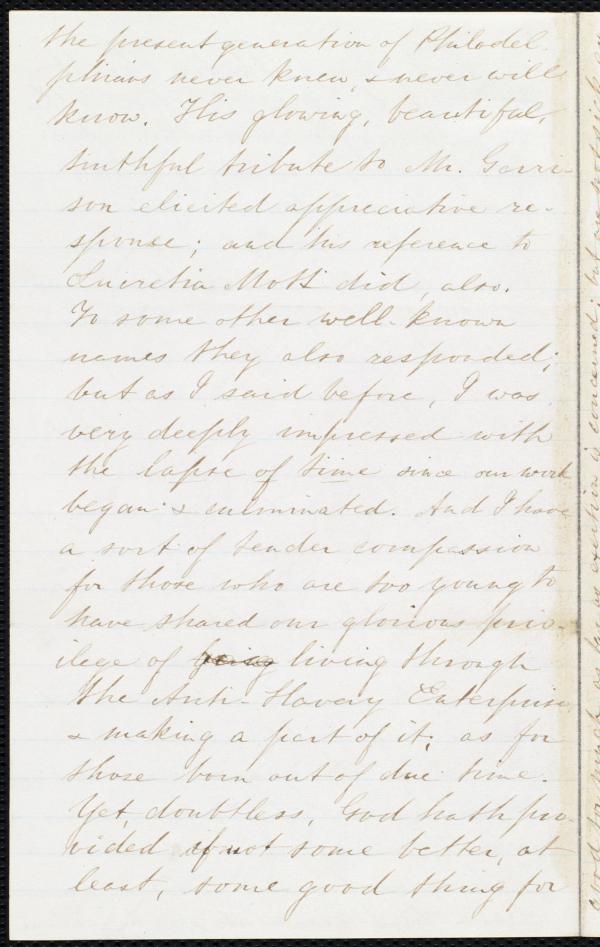 the present generation of Philadel-
phians never knew, & never will
know. His glowing, beautiful,
truthful tribute to Mr. Garri-
son elicited appreciative re-
sponse; and his reference to
Lucretia Mott did, also.
To some other well-known
names they also responded;
but as I said before, I was
very deeply impressed with
the lapse of time since our work
began & culminated. And I have
a sort of tender compassion
for those who are too young to
have shared our glorious priv-
ilege of being living through
the Anti-Slavery Enterprise
& making a part of it; as for
those born out of due time.
Yet, doubtless, God hath pro-
vided if not some better, at
least, some good thing for